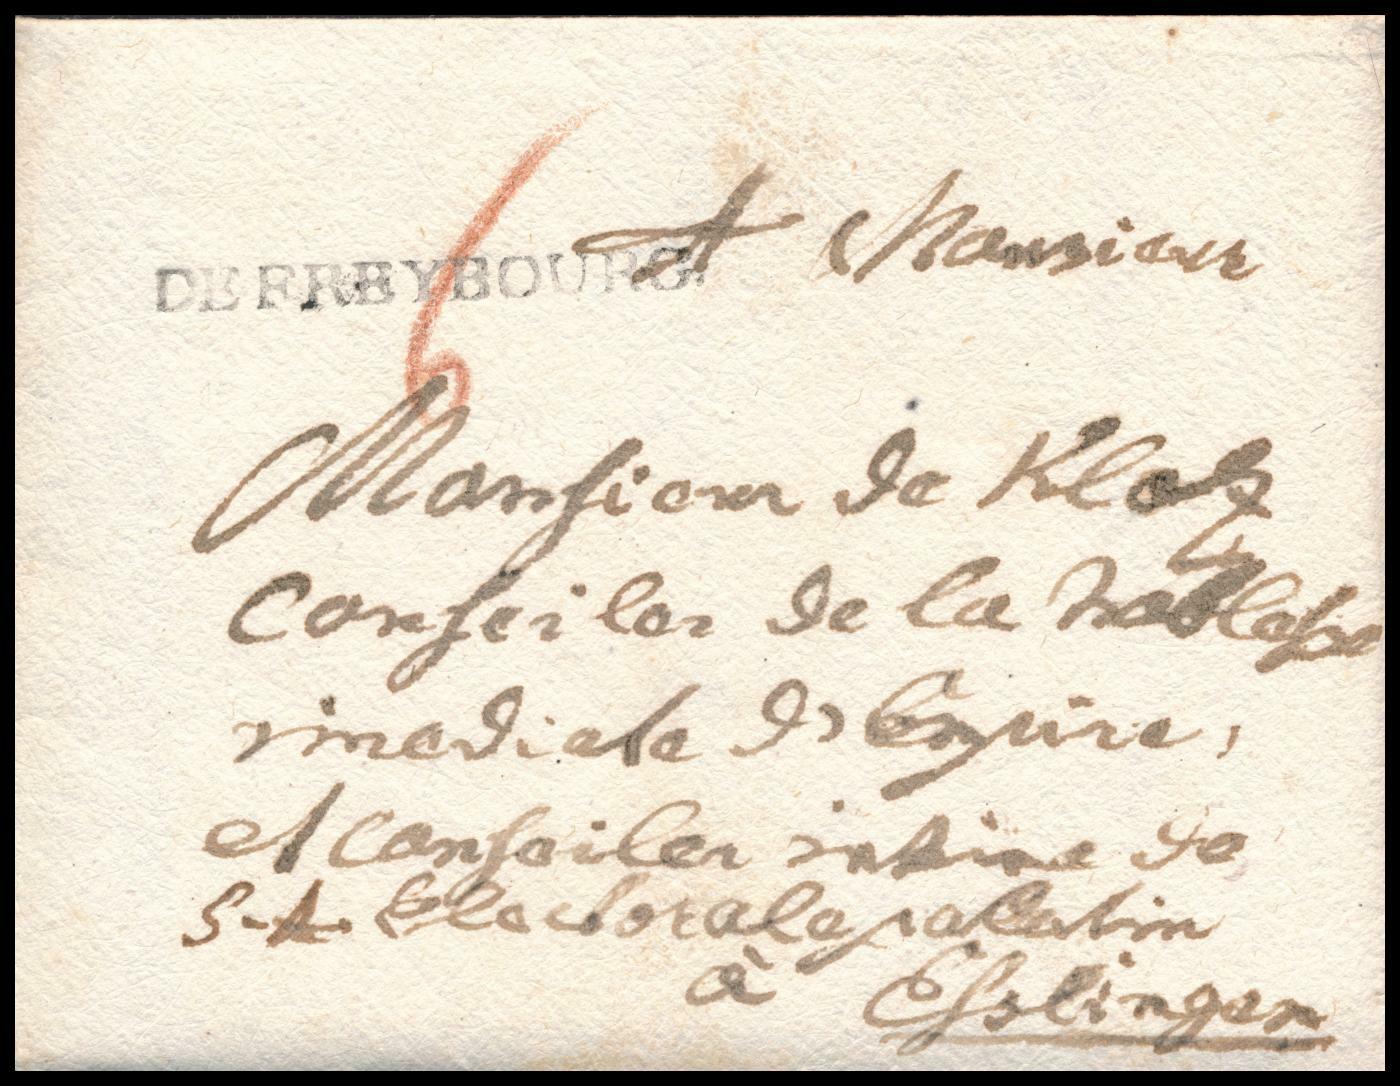 6
DE FREYBOURG.
A Monsieur
Monsieur de Klotz
Conseiler de la Noblesse
imediate d'Empire,
et Conseiler intime de
S. A. Electorale palatin
à Esslingen